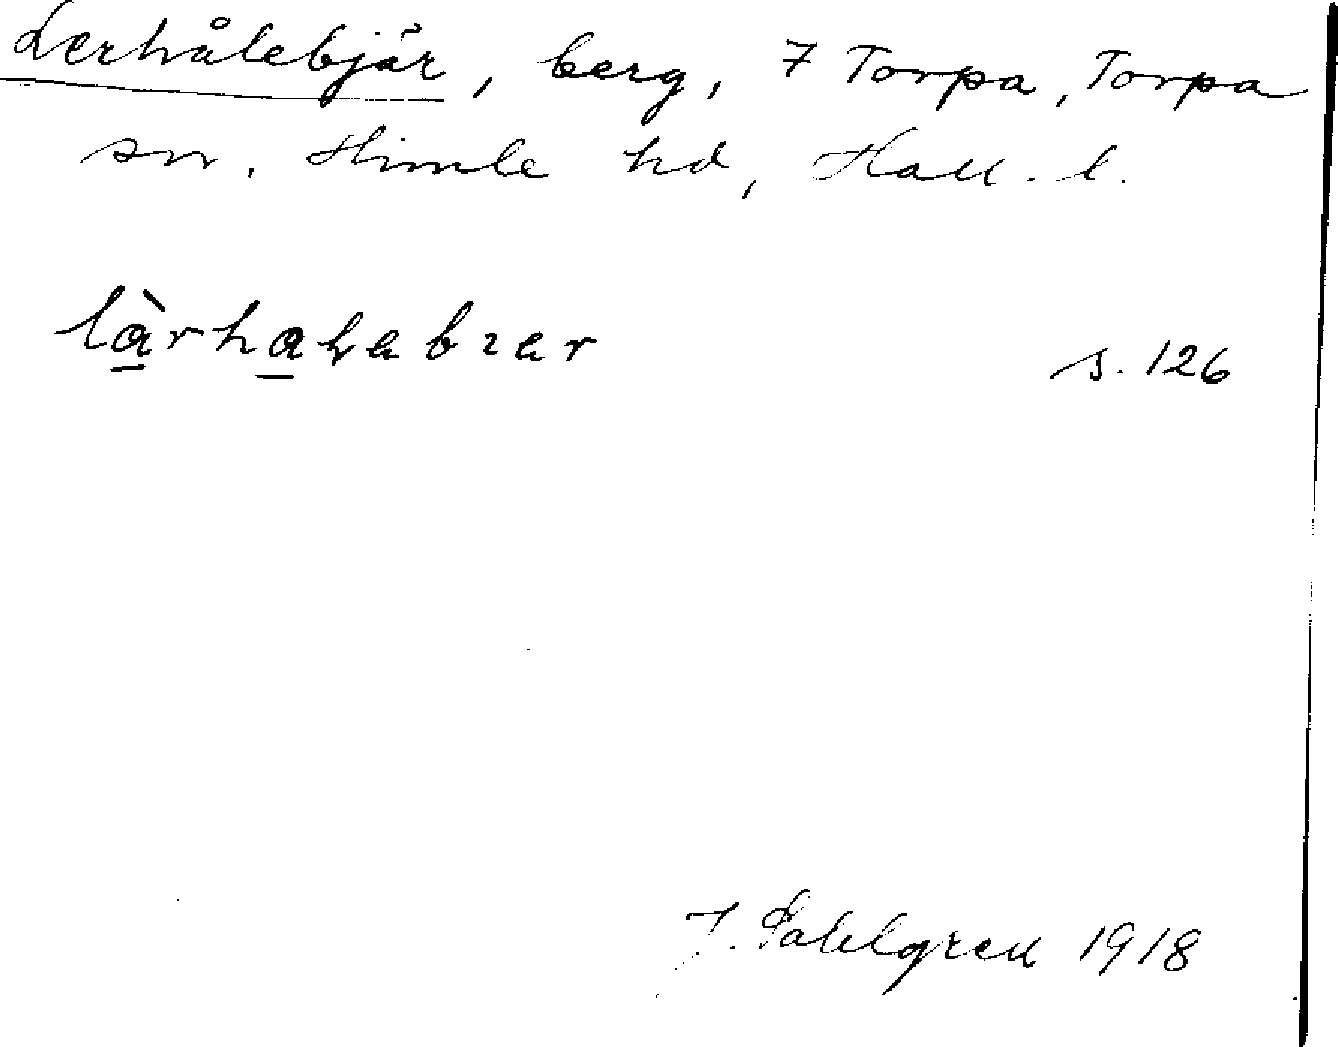 Lerhålebjär, berg, 7 Torpa, Torpa
sn. Himle hd, Hall. l.
s. 126
J. Sahlgren 1918